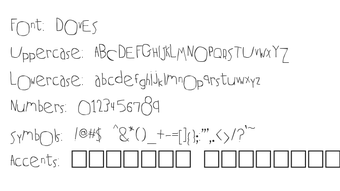 Font: DOVES
Uppercase: ABCDEFGHIJKLMNOPQRSTUVWXYZ
Lowercase: abcdefghijklmnopqrstuvwxyz
Numbers: 0123456789
Symbols: !@#$ ^&*()_+-=[]{};'",.<>/?`~
Accents: □□□□□□□ □□□□□□□□